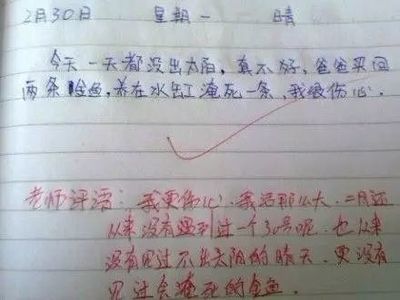 2月30日 星期一 晴
今天一天都没出太阳,真不好,爸爸买回
两条金鱼,养在水缸淹死一条,我很伤心.
老师评语:我更伤心!我活那么大,二月还
从来没有遇到过一个30号呢,也从来
没有见过不出太阳的晴天,更没有
见过会淹死的金鱼.